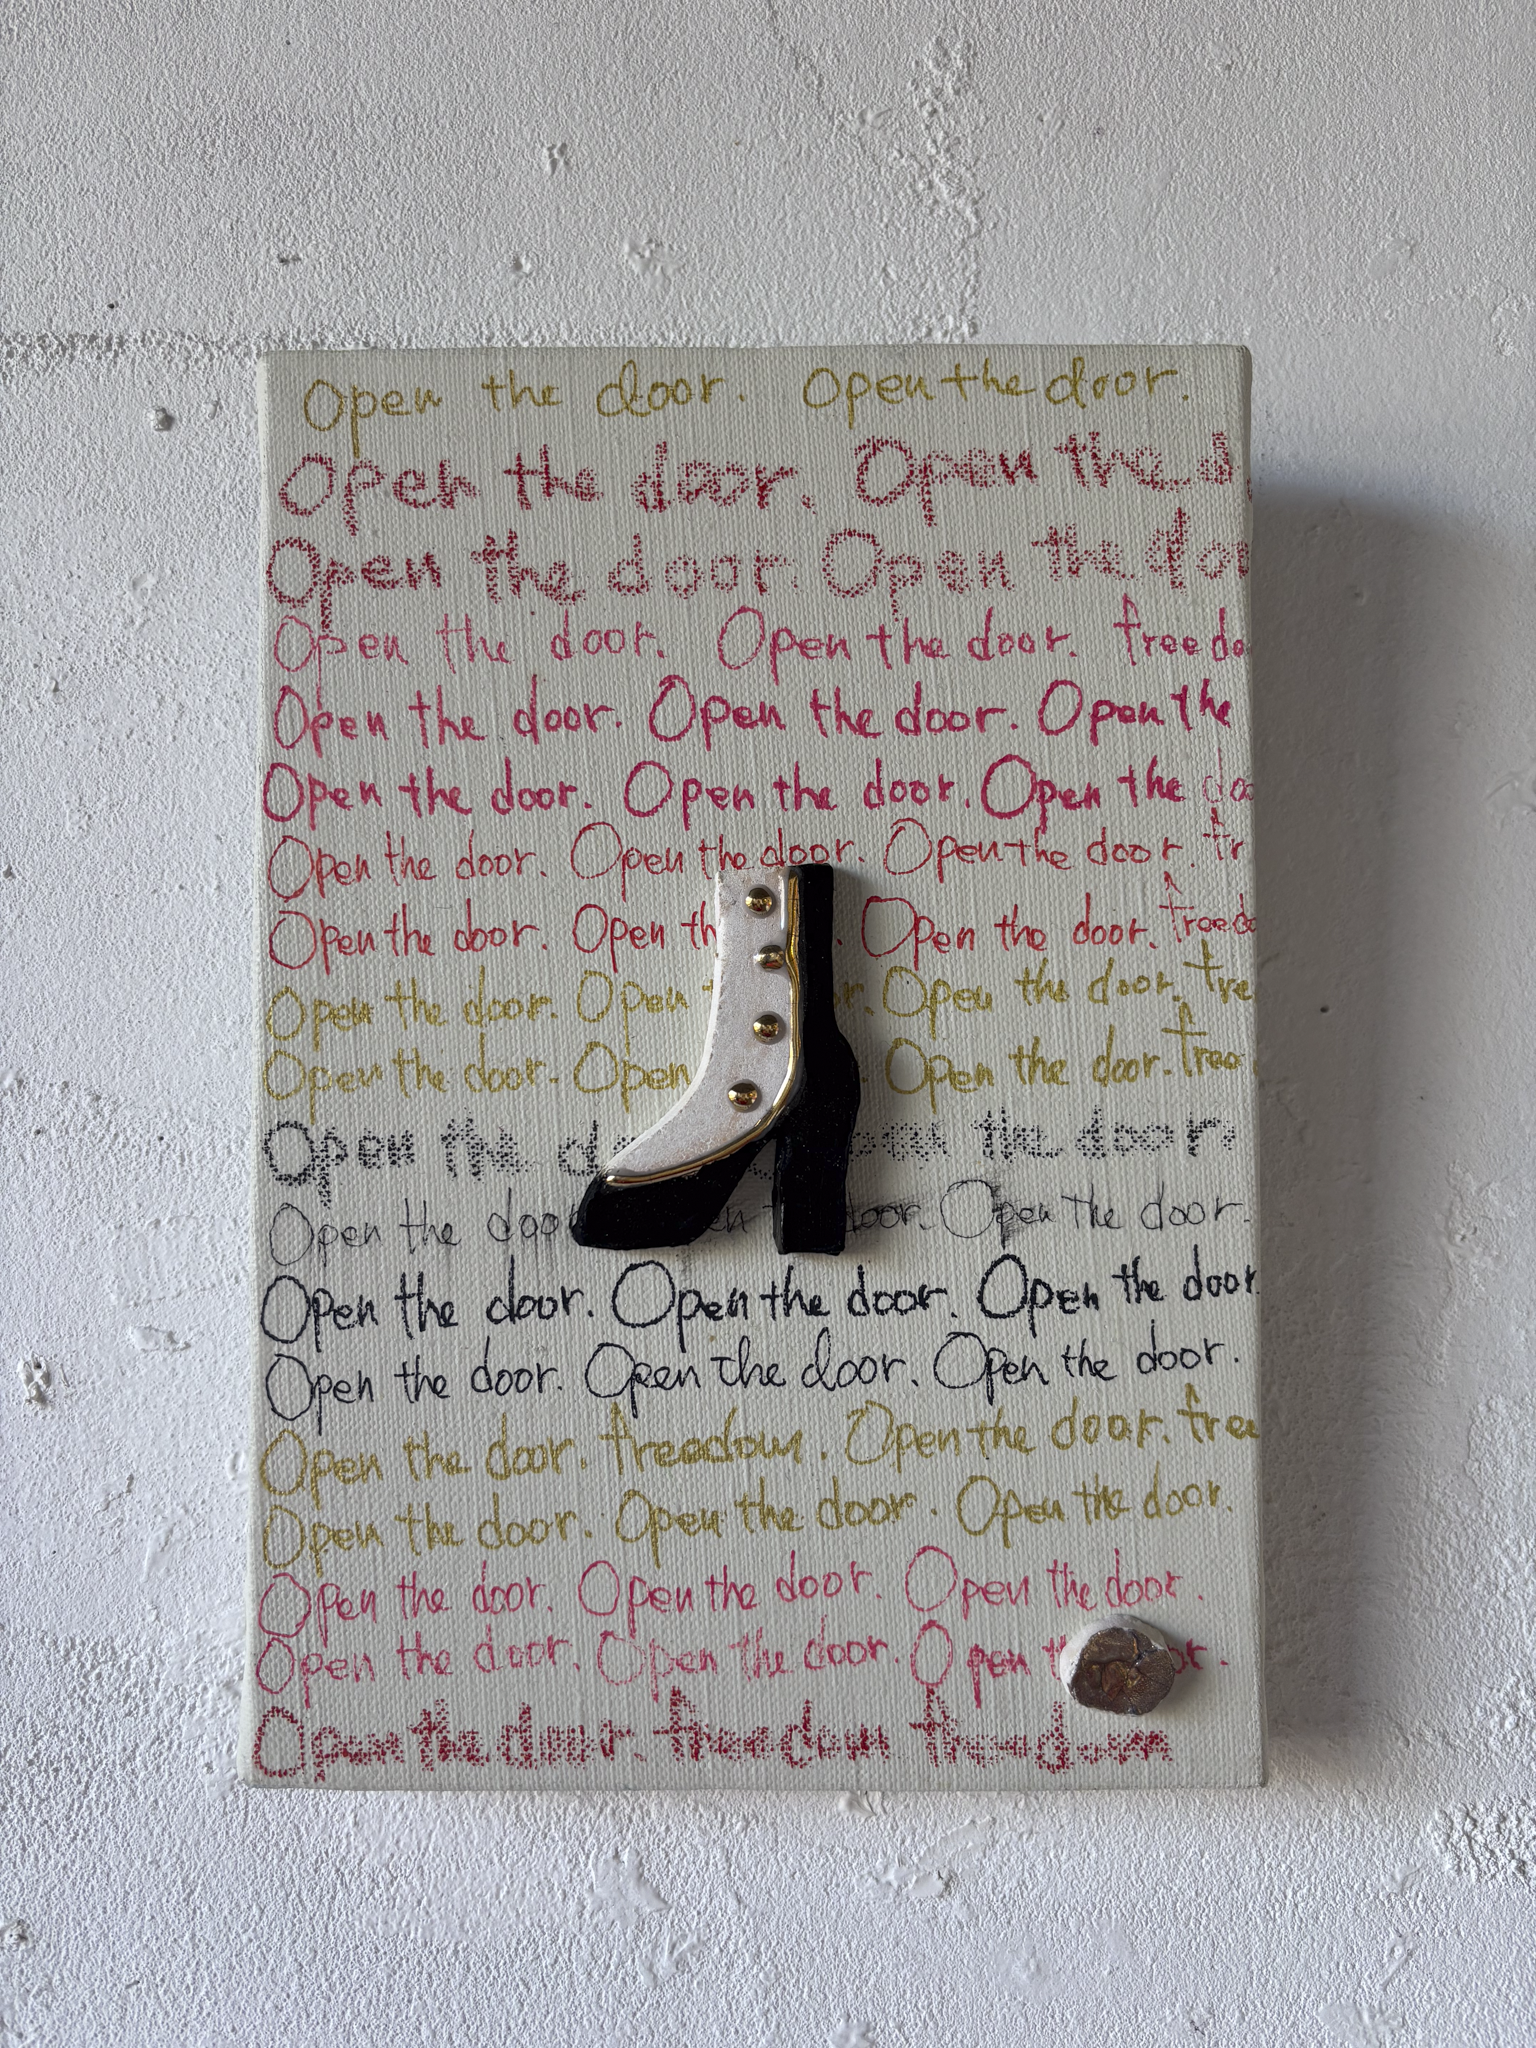 Open the door. Open the door.
Open the door. Open the d
Open the door. Open the doo
Open the door. Open the door. freedo
Open the door. Open the door. Open the
Open the door. Open the door. Open the doo
Open the door. Open the door. Open the door. fr
Open the door. Open th . Open the door. freedo
Open the door. Open or. Open the door. free
Open the door. Open Open the door. free
Open the d the door
Open the door door. Open the door.
Open the door. Open the door. Open the door.
Open the door. Open the door. Open the door.
Open the door. freedom. Open the door. free
Open the door. Open the door. Open the door.
Open the door. Open the door. Open the door.
Open the door. Open the door. Open t or.
Open the door. freedom freedom